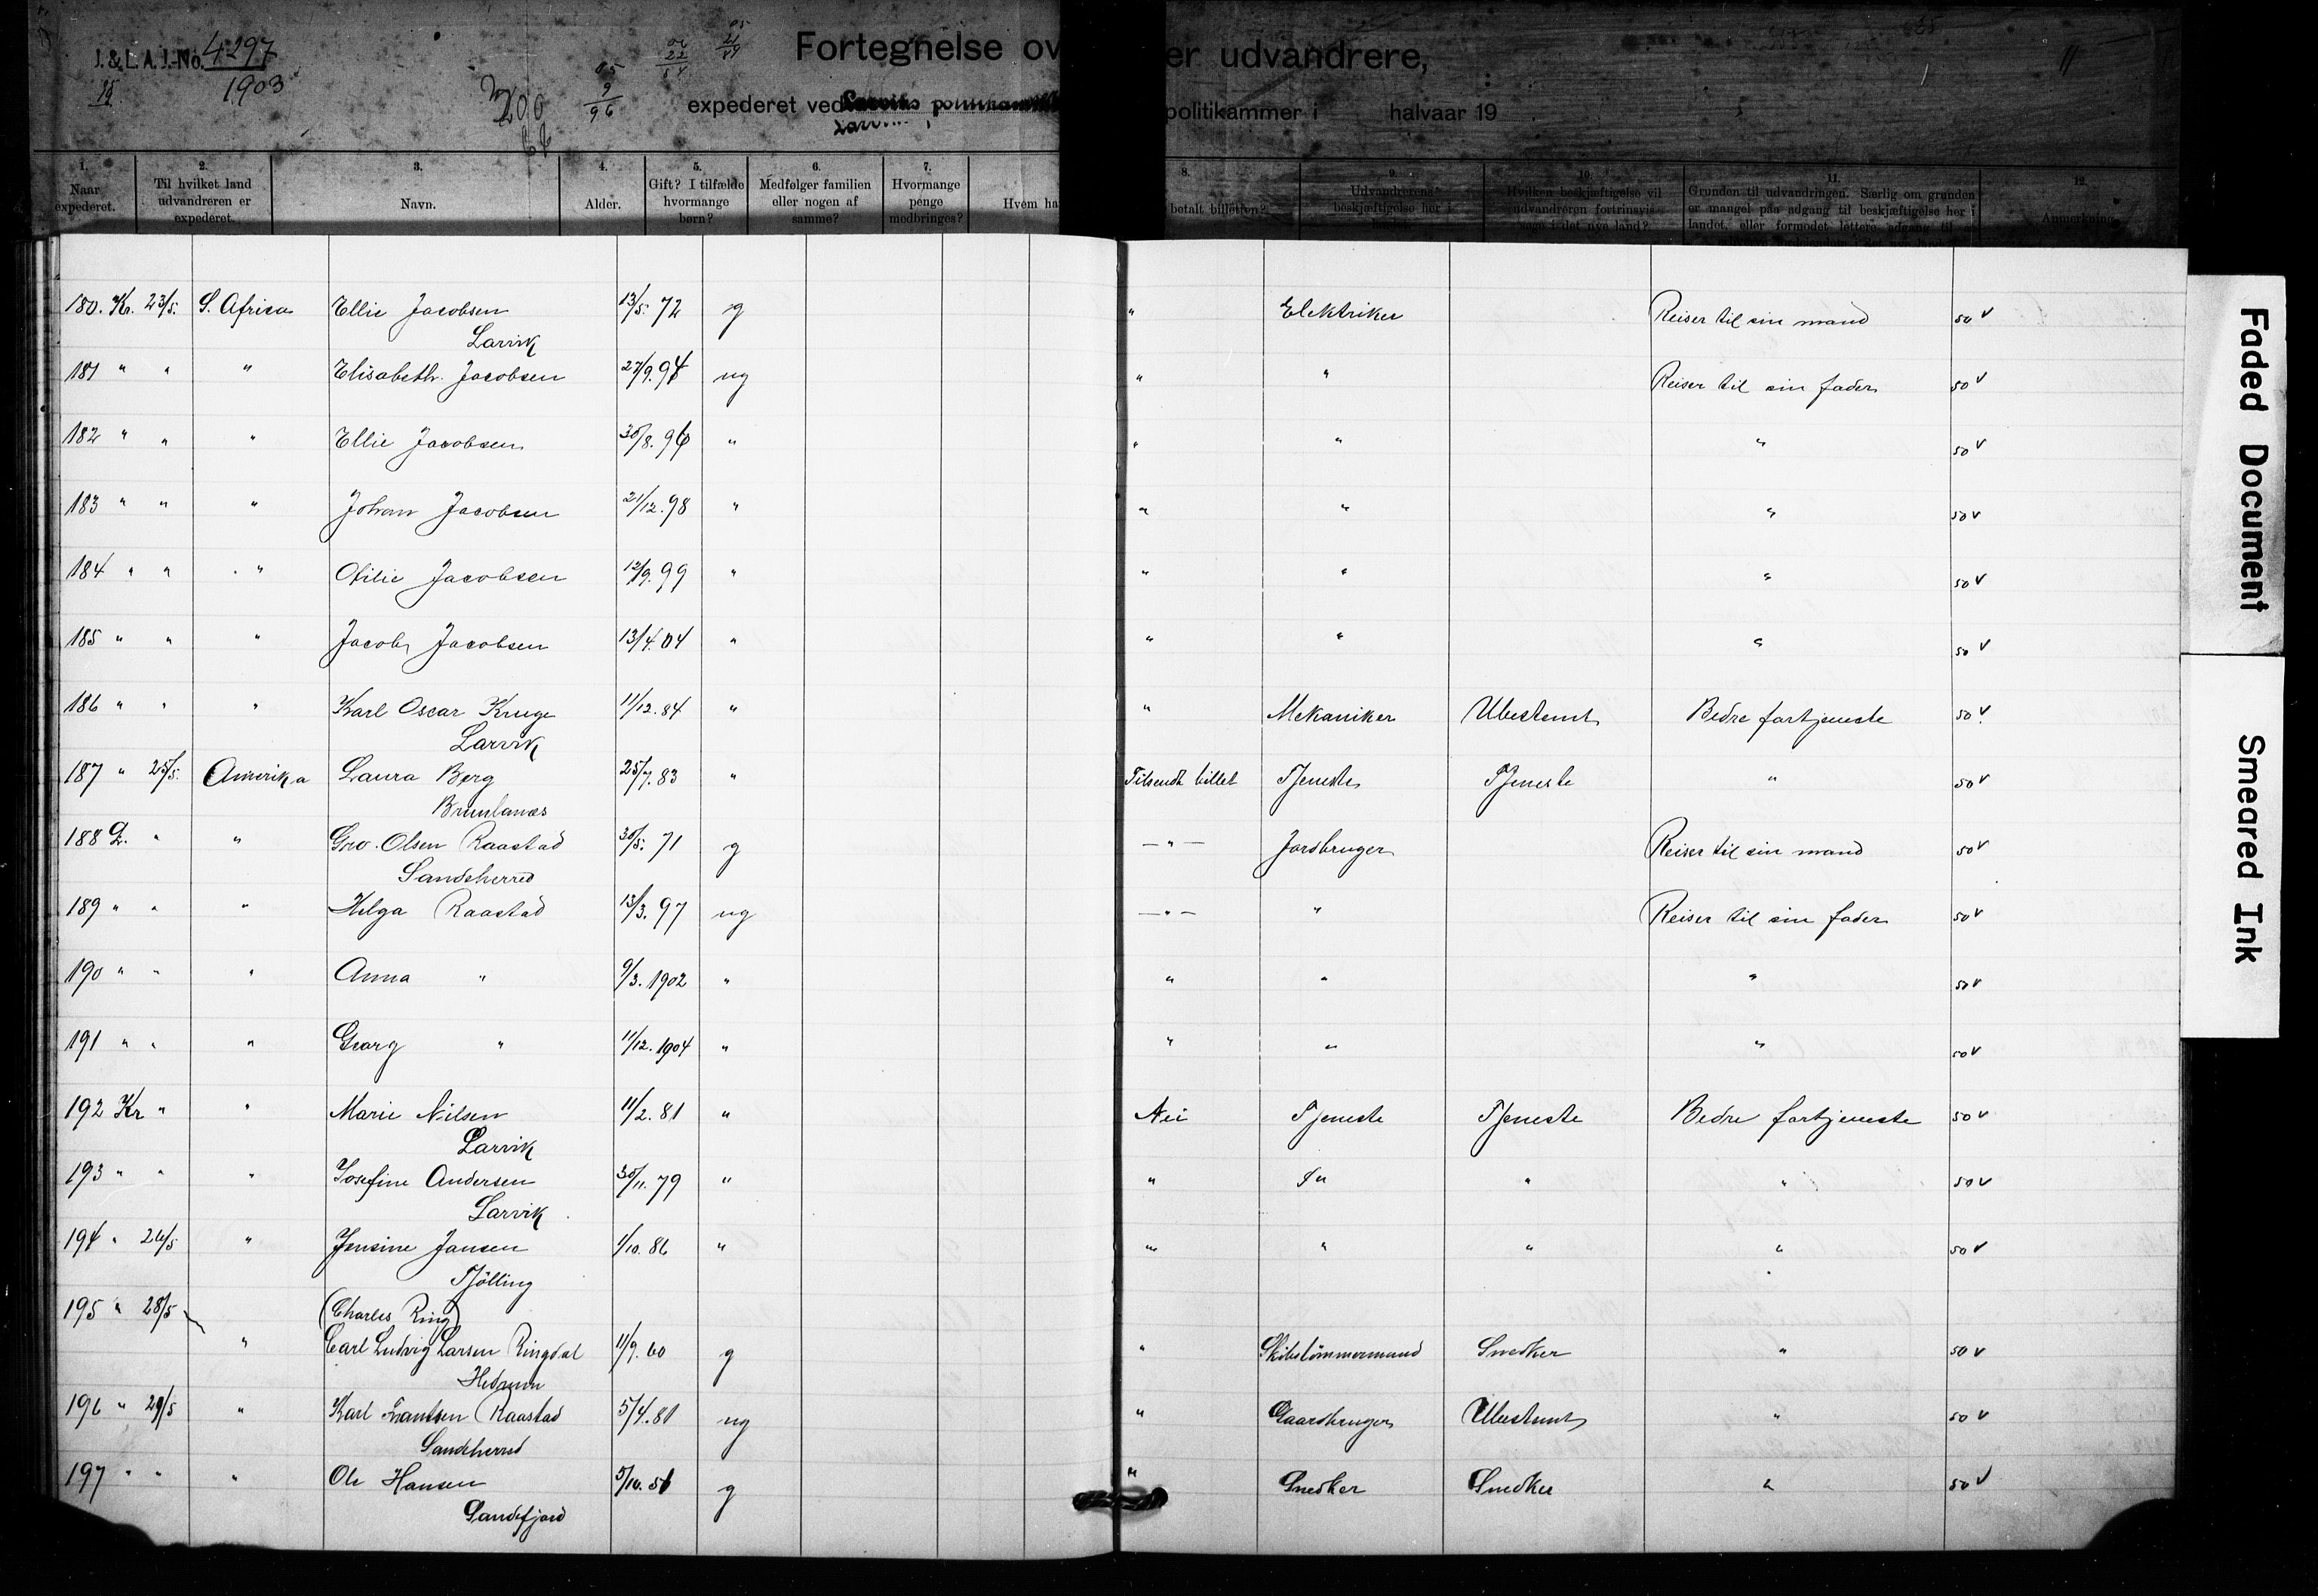 J. & L. A. J.-No. 4297
1903
Fortegnelse ov er udvandrere,
expederet ved politikammer i halvaar 19
1. Naar expederet.
2. Til hvilket land udvandreren er expederet.
3. Navn.
4. Alder.
5. Gift? I tilfælde hvormange børn?
6. Medfølger familien eller nogen af samme?
7. Hvormange penge medbringes?
Hvem ha
8. betalt billetten?
9. Udvandrerens beskjæftigelse her i
10. Hvilken beskjæftigelse vil udvandreren fortrinsvis søge i det nye land?
11. Grunden til udvandringen. Særlig om grunden er mangel paa adgang til beskjæftigelse her i landet, eller formodet lettere adgang til
12. Anmerkning.
180. Kr. 23/5. S. Africa Ellie Jacobsen 13/5. 72 g " Elektriker Reiser til sin mand 50 v
Larvik
181 " " " Elisabeth. Jacobsen 27/9. 94 ug " " Reiser til sin fader 50 v
182 " " " Ellie Jacobsen 30/8. 96 " " " " 50 v
183 " " " Johan Jacobsen 21/12. 98 " " " " 50 v
184 " " " Otilie Jacobsen 12/9. 99 " " " " 50 v
185 " " " Jacob Jacobsen 13/4. 04 " " " " 50 v
186 " " " Karl Oscar Kruge 11/12. 84 " " Mekaniker Ubestemt Bedre fortjeneste 50 v
Larvik
187 " 25/5. Amerika Laura Berg 25/7. 83 " Tilsendt billet Tjeneste Tjeneste " 50 v
Brunlanæs
188 " " Gro. Olsen Raastad 30/5. 71 g — " — Jordbruger Reiser til sin mand 50 v
Sandeherred
189 " " " Helga Raastad 13/3. 97 ug — " — " Reiser til sin fader 50 v
190 " " " Anna " 9/3. 1902 " " " " 50 v
191 " " " Georg " 11/12. 1904 " " " " 50 v
192 Kr " " Marie Nilsen 11/2. 81 " Nei Tjeneste Tjeneste Bedre fortjeneste 50 v
Larvik
193 " " " Josefine Andersen 30/11. 79 " " " " 50 v
Larvik
194 " 26/5 " Jensine Jansen 1/10. 86 " " " " " 50 v
Tjölling
195 " 28/5 (Charles Ring)
" Carl Ludvig Larsen Ringdal 11/9. 60 g " Skibstömmermand Snedker " 50 v
Hedrum
196 " 29/5 " Karl Frantsen Raastad 5/4. 81 ug " Gaardbruger Ubestemt " 50 v
Sandeherred
197 " " " Ole Hansen 5/10. 51 g " Snedker Snedker " 50 v
Sandefjord
Faded Document
Smeared Ink